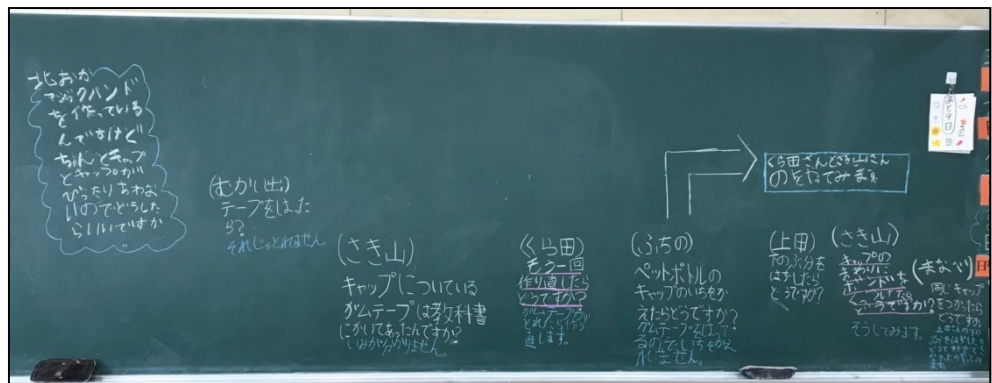 北おか
マジックハンド
を作っている
んですけど
ちゃんとキャップ
とキャップが
ぴったりあわな
いのでどうした
らいいですか
(むかい出)
テープをはった
ら?
それじゃとれません
(さき山)
キャップについている
ガムテープは教科書
にかいてあったんですか?
いみが分かりません。
(くら田)
もう一回
作り直したら
どうですか?
ガムテープが
とれたら作り
直します。
(ふちの)
ペットボトルの
キャップのいちをか
えたらどうですか?
ガムテープをはって
るのでいちをかえ
れません。
くら田さんとさき山さん
のをやってみます。
(上田)
下のぶ分を
はずしたら
どうですか?
(さき山)
キャップの
まわりに
ボンドを
つけたら
どうですか?
そうしてみます。
(まなべり)
同じキャップ
をつかったら
どうですか
あと9日